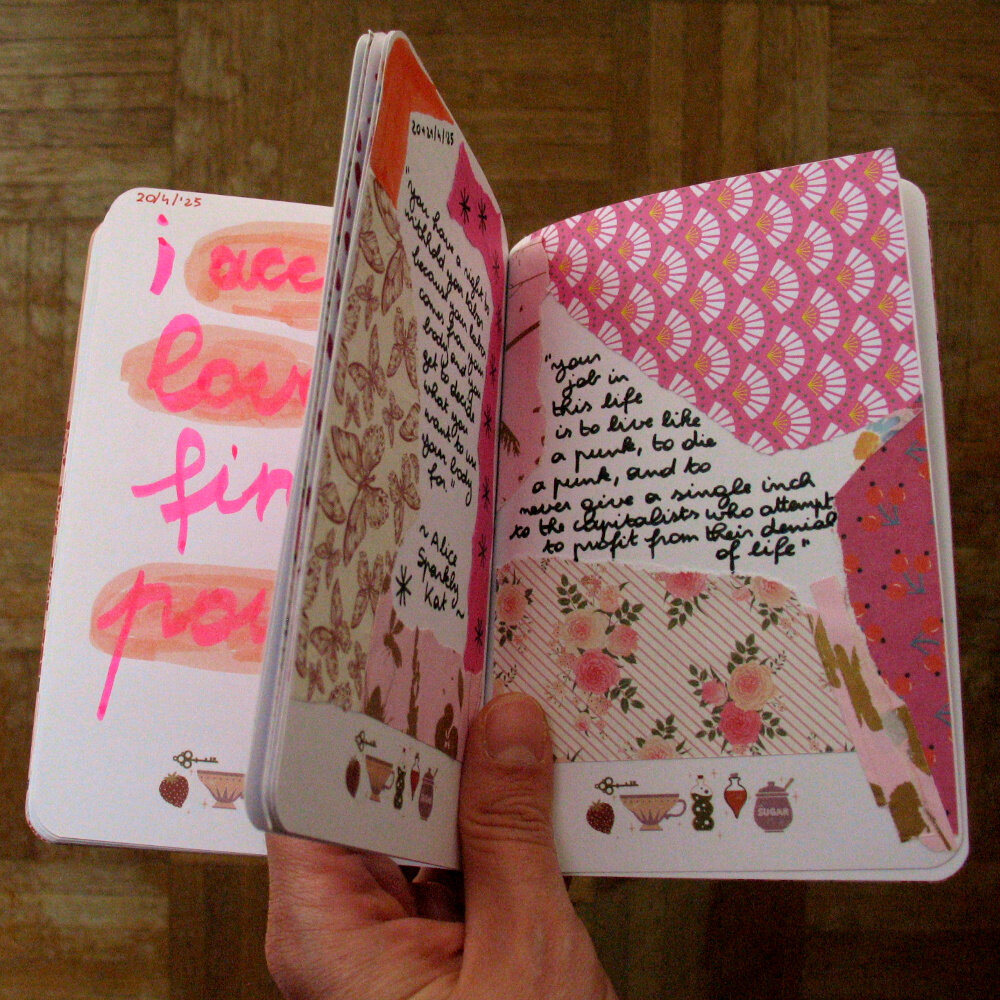 20/4/'25
i
fin
20+21/4/'25
"you have a right to
withhold your labor
because your labor
comes from your
body and you
get to decide
what you
want to use
your body
for."
~Alice
Sparkly
Kat~
"your
job in
this life
is to live like
a punk, to die
a punk, and to
never give a single inch
to the capitalists who attempt
to profit from their denial
of life"
SUGAR